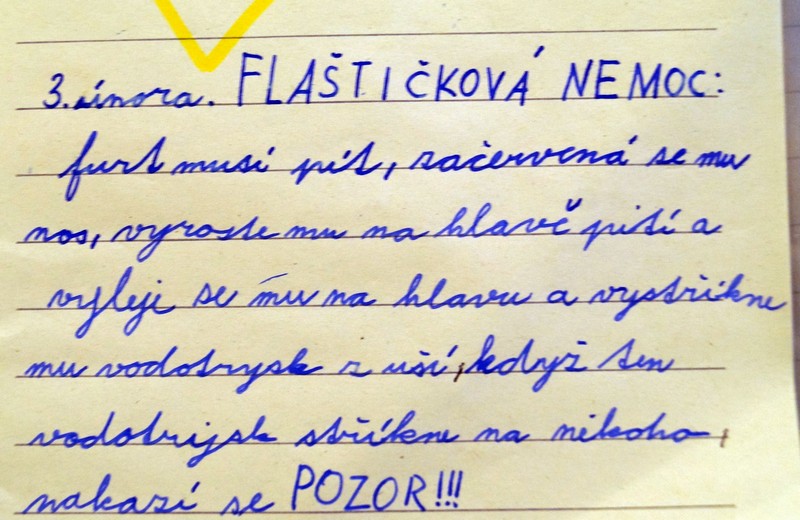 3. února. FLAŠTIČKOVÁ NEMOC:
furt musí pít, začervená se mu
nos, vyroste mu na hlavě pití a
vyleje se mu na hlavu a vystříkne
mu vodotrysk z uší, když ten
vodotrijsk stříkne na někoho,
nakazí se POZOR!!!